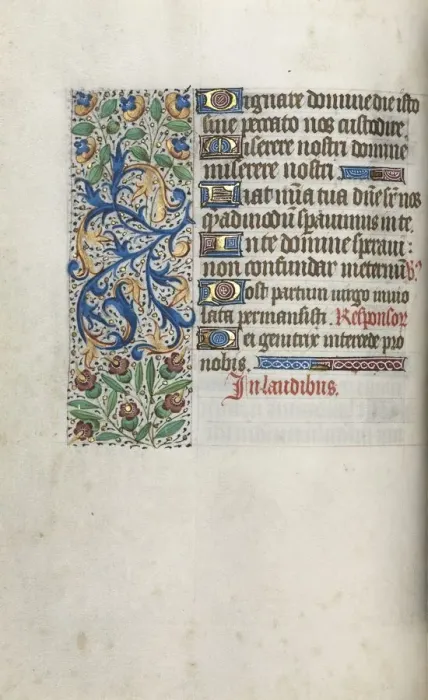 Dignare domine die isto
sine peccato nos custodire.
Miserere nostri domine
miserere nostri.
Fiat mīa tua dn̄e sr̄ nos
q̄adinodū sp̄auimus in te.
In te domine speraui:
non confundar in eternū. V̄s.
Post partum uirgo inuio
lata permansisti. Responsor
Dei genitrix intercede pro
nobis.
In laudibus.